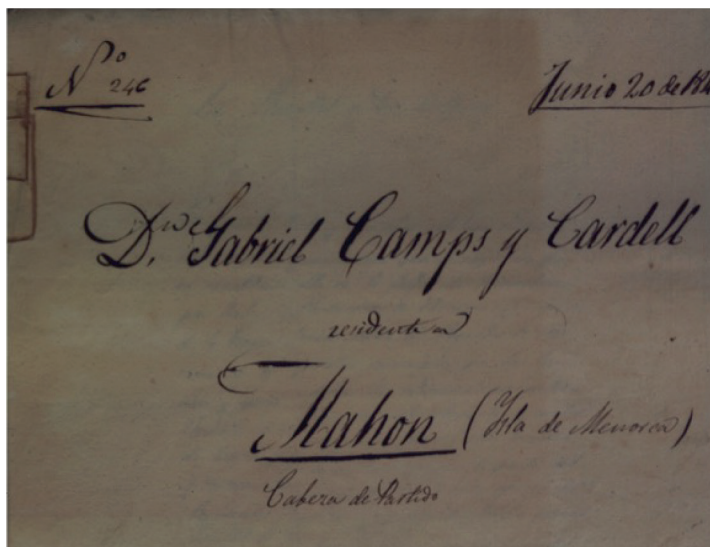 Nº 246
Junio 20 de 184
D. Gabriel Camps y Cardell
residente en
Mahon (Ysla de Menorca)
Cabeza de Partido